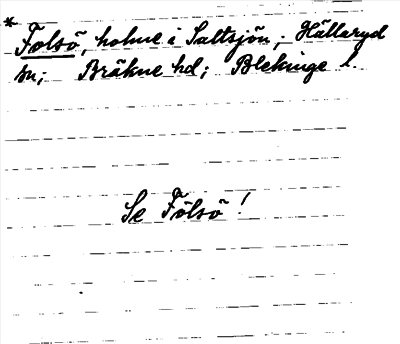 * Folsö, holme i Saltsjön; Hällaryd
sn; Bräkne hd; Blekinge l.
Se Fölsö!